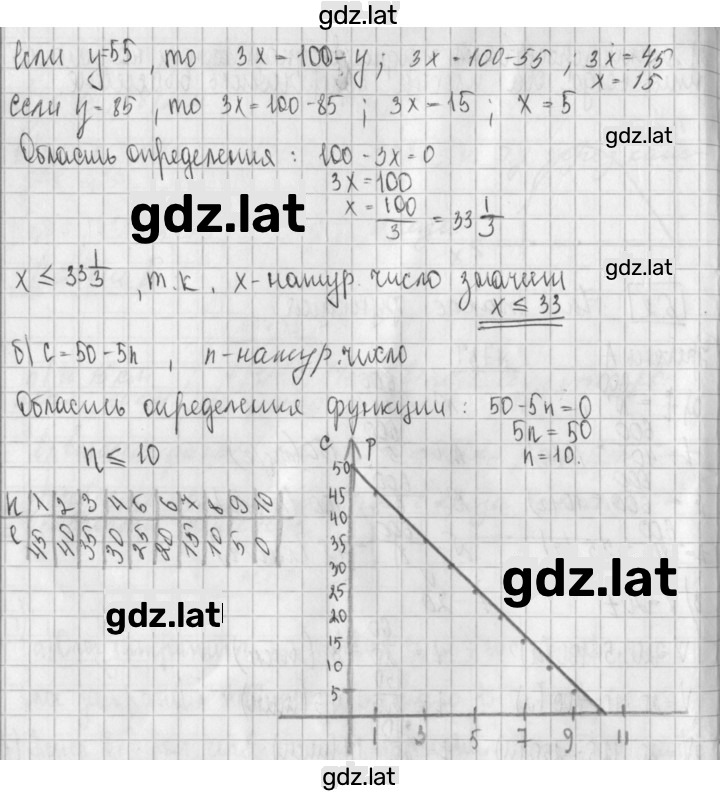 gdz.lat
если y=55, то 3x=100-y; 3x=100-55; 3x=45
x=15
если y=85, то 3x=100-85; 3x=15; x=5
gdz.lat
Область определения: 100-3x=0
3x=100
gdz.lat
x=100/3=33 1/3
x≤33 1/3, т.к. x-натур. число значит
gdz.lat
x≤33
б) c=50-5n, n-натур.число
Область определения функции: 50-5n=0
5n=50
n≤10
n=10.
c р
50
45
40
35
30
25
20
15
10
5
1 3 5 7 9 11
n 1 2 3 4 5 6 7 8 9 10
c 45 40 35 30 25 20 15 10 5 0
gdz.lat
gdz.lat
gdz.lat